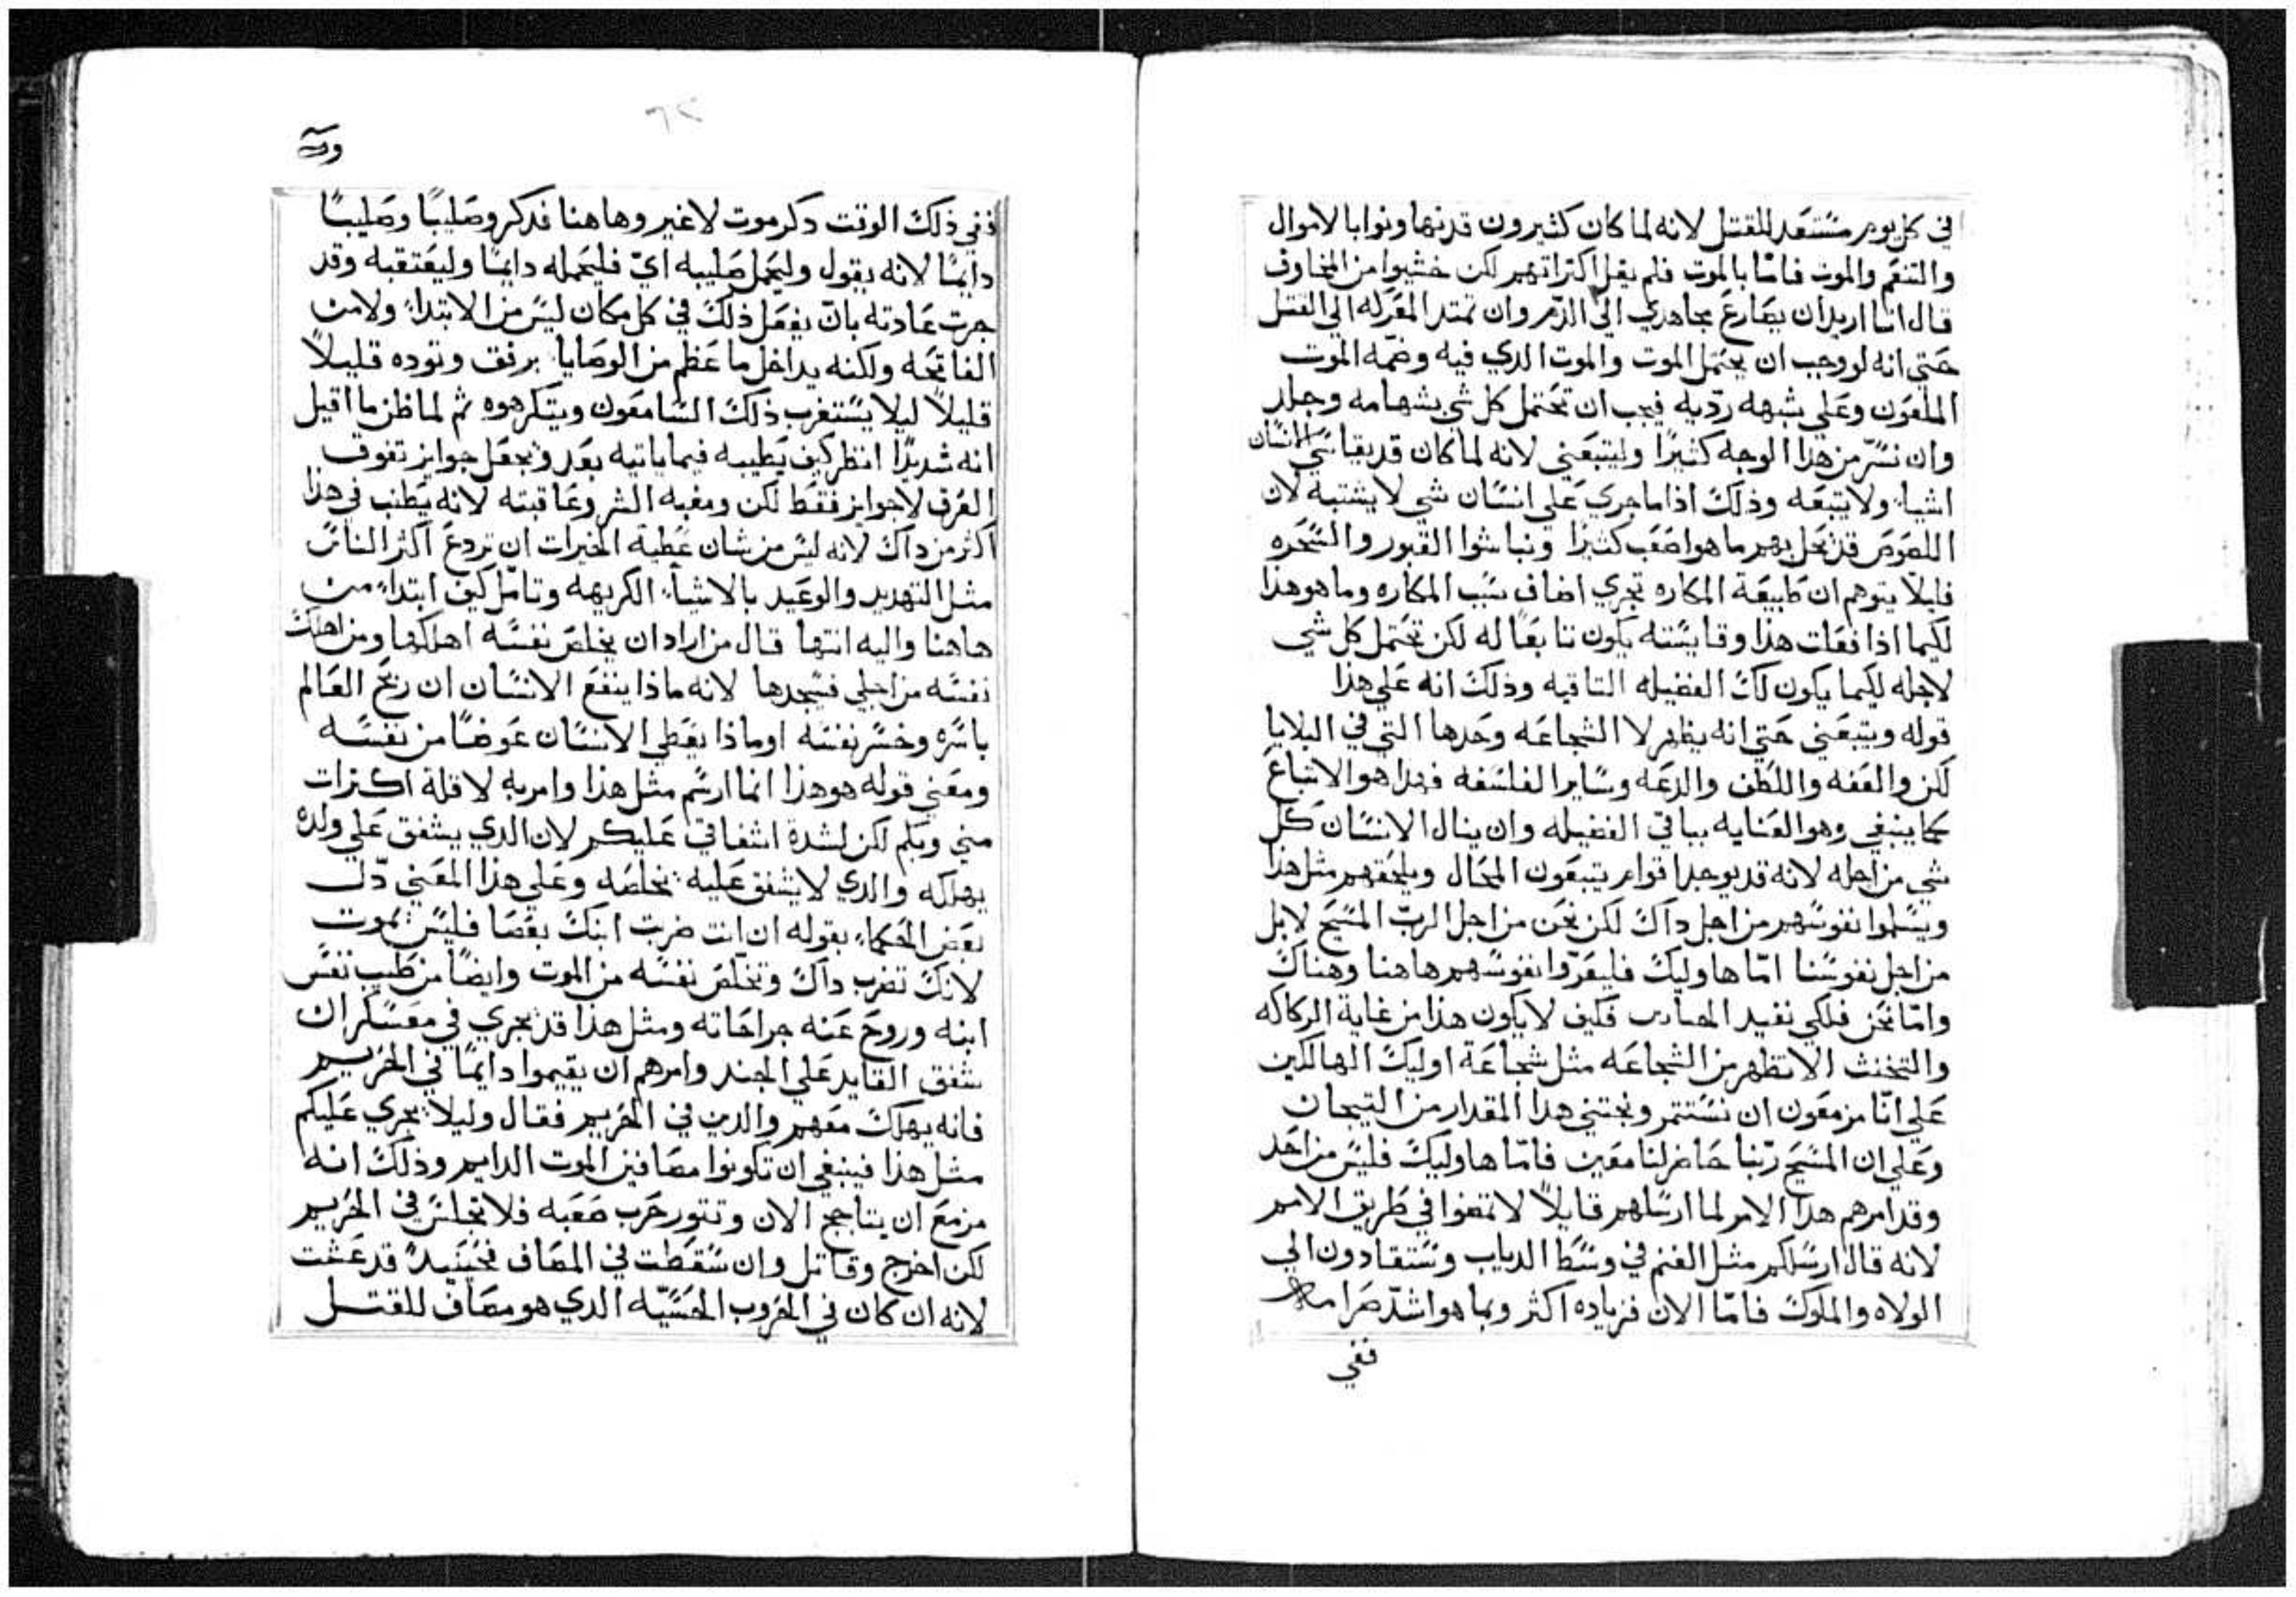 في كل يوم مستعد للقتل لانه لما كان كثيرون قد تهاونوا بالاموال
والتنعم والموت فاما بالموت فلم يقل اكتراثهم لكن خشيوا من المخاوف
قال انا اريد ان يصارع مجاهدي الي الدم وان تمتد المعركه الي القتل
حتي انه لو وجب ان يحتمل الموت والموت الدي فيه وضمه الموت
الملعون وعلي شبهه رديه فيجب ان تحتمل كل شي بشهامه وجلد
وان نسر من هدا الوجه كثيرا وليتبعني لانه لما كان قد يقاسي الانسان
اشيا ولا يتبعه وذلك اذا ما جري علي انسان شي لا يشتبه لان
اللصوص قد تحل بهم ما هو اصعب كثيرا ونباشوا القبور والسحره
فليلا يتوهم ان طبيعة المكاره تجري اضاف سبب المكاره وما هو هذا
لكيما اذا فعلت هذا وقايسته يكون تابعا له لكن تحتمل كل شي
لاجله لكيما يكون لك الفضيله التاقيه وذلك انه علي هذا
قوله ويتبعني حتي انه يظهر لا الشجاعه وحدها التي في البلايا
لكن والعفه واللطف والدعه وساير الفلسفه فهدا هو الاتباع
كما ينبغي وهو العنايه بباقي الفضيله وان ينال الانسان كل
شي من اجله لانه قد يوجد اقوام يتبعون المحال ويلحقهم مثل هذا
ويسلموا نفوسهم من اجل داك لكن نحن من اجل الرب المسيح لا بل
من اجل نفوسنا اما هاوليك فليغروا نفوسهم هاهنا وهناك
واما نحن فلكي نفيد فكيف لا يكون هذا من غاية الركاكه
والتخنث الا تظهر من الشجاعه مثل شجاعة اوليك الهالكين
علي انا مزمعون ان نستتمر ونجتني هدا المقدار من التيجان
وعلي ان المسيح ربنا حاضر لنا معين فاما هاوليك فليس من احد
وقد امرهم هدا الامر لما ارسلهم قايلا لا تمضوا في طريق الامم
لانه قال ارسلكم مثل الغنم في وسط الدياب وستقادون الي
الولاه والملوك فاما الان فزياده اكثر وبما هو اشد صرامه
ففي
ففي ذلك الوقت دكر موت لا غير وهاهنا فدكر وصليبا وصليبا
دايما لانه يقول وليحمل صليبه اي فليحمله دايما وليعتقبه وقد
جرت عادته بان يفعل ذلك في كل مكان ليس من الابتدا ولا من
الفاتحه ولكنه يداخل ما عظم من الوصايا برفق وتوده قليلا
قليلا ليلا يستغرب ذلك السامعون ويتكرهوه ثم لما ظن ما اقيل
انه شديدا انظر كيف يطيبه فيما ياتيه بعد ويجعل جوايز تفوق
العرق لا جوايز فقط لكن ومغبه الشر وعاقبته لانه يطنب في هذا
اكثر من داك لانه ليس من شان عطية الخيرات ان تردع اكثر الناس
مثل التهديد والوعيد بالاشيا الكريهه وتامل كيف ابتدا من
هاهنا واليه انتها قال من اراد ان يخلص نفسه اهلكها ومن اهلك
نفسه من اجلي فسيجدها لانه ماذا ينفع الانسان ان ربح العالم
باسره وخسر نفسه او ماذا يعطي الانسان عوضا من نفسه
ومعني قوله هو هذا انما ارسم مثل هذا وامر به لا قلة اكترات
مني وبكم لكن لشدة اشفاقي عليكم لان الدي يشفق علي ولده
يهلكه والدي لا يشفق عليه يخلصه وعلي هذا المعني دل
بعض الحكما بقوله ان انت ضربت ابنك بعصا فليس يموت
لانك تضرب داك وتخلص نفسه من الموت وايضا من طيب نفس
ابنه وروح عنه جراحاته ومثل هذا قد يجري في معسكر ان
شفق القايد علي الجند وامرهم ان يقيموا دايما في الخريم
فانه يهلك معهم والدين في الخريم فقال وليلا يجري عليكم
مثل هذا فينبغي ان تكونوا مصافين الموت الدايم وذلك انه
مزمع ان يتاجج الان وتتور حرب صعبه فلا تجلس في الخريم
لكن اخرج وقاتل وان سقطت في المصاف فحينيد قد عشت
لانه ان كان في الحروب الحسيه الدي هو مصاف للقتل